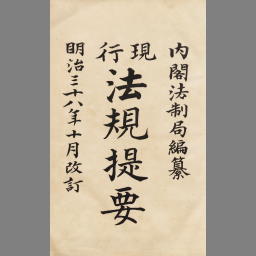 内閣法制局編纂
現行
法規提要
明治三十八年十月改訂